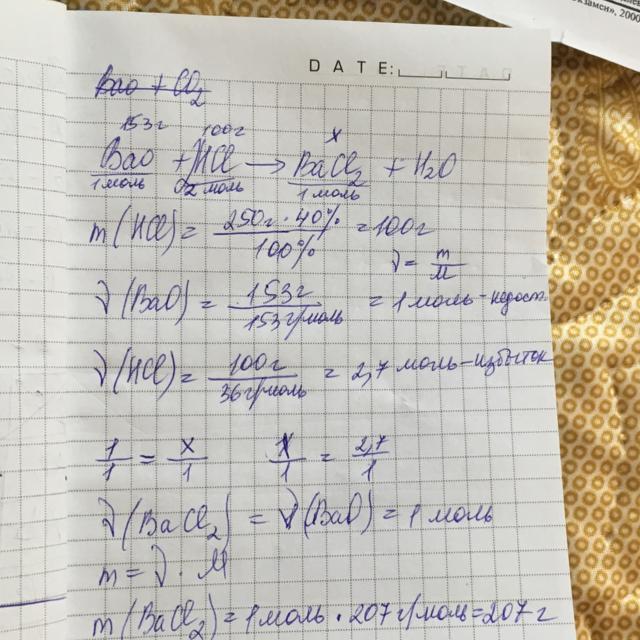 экзамен», 2000
DATE:
BaO + CO2
153г 100г x
BaO + HCl → BaCl2 + H2O
1 моль 2 моль 1 моль
m(HCl) = 250г · 40% / 100% = 100г
ν = m / M
ν(BaO) = 153г / 153г/моль = 1 моль - недост.
ν(HCl) = 100г / 36г/моль = 2,7 моль - избыток
1/1 = x/1 x/1 = 2,7/1
ν(BaCl2) = ν(BaO) = 1 моль
m = ν · M
m(BaCl2) = 1 моль · 207 г/моль = 207 г